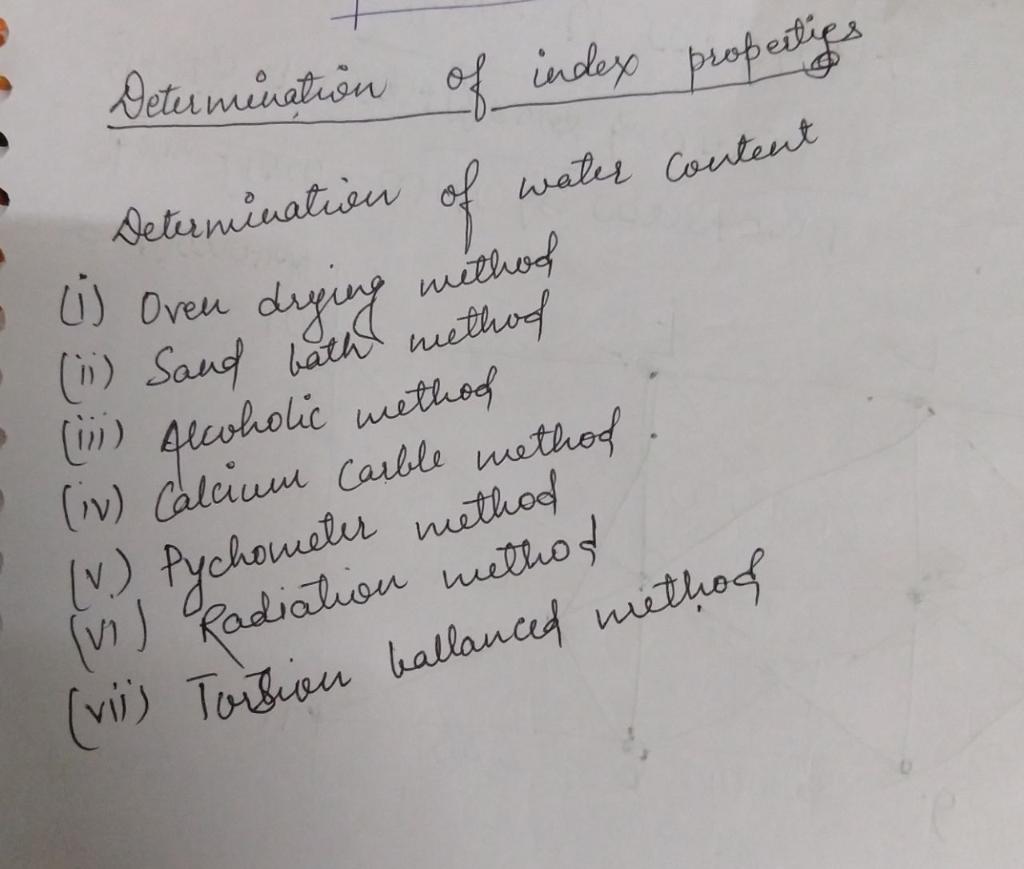 Determination of index properties
Determination of water content
(i) Oven drying method
(ii) Sand bath method
(iii) Alcoholic method
(iv) Calcium Carble method
(v) Pychometer method
(vi) Radiation method
(vii) Torsion ballanced method